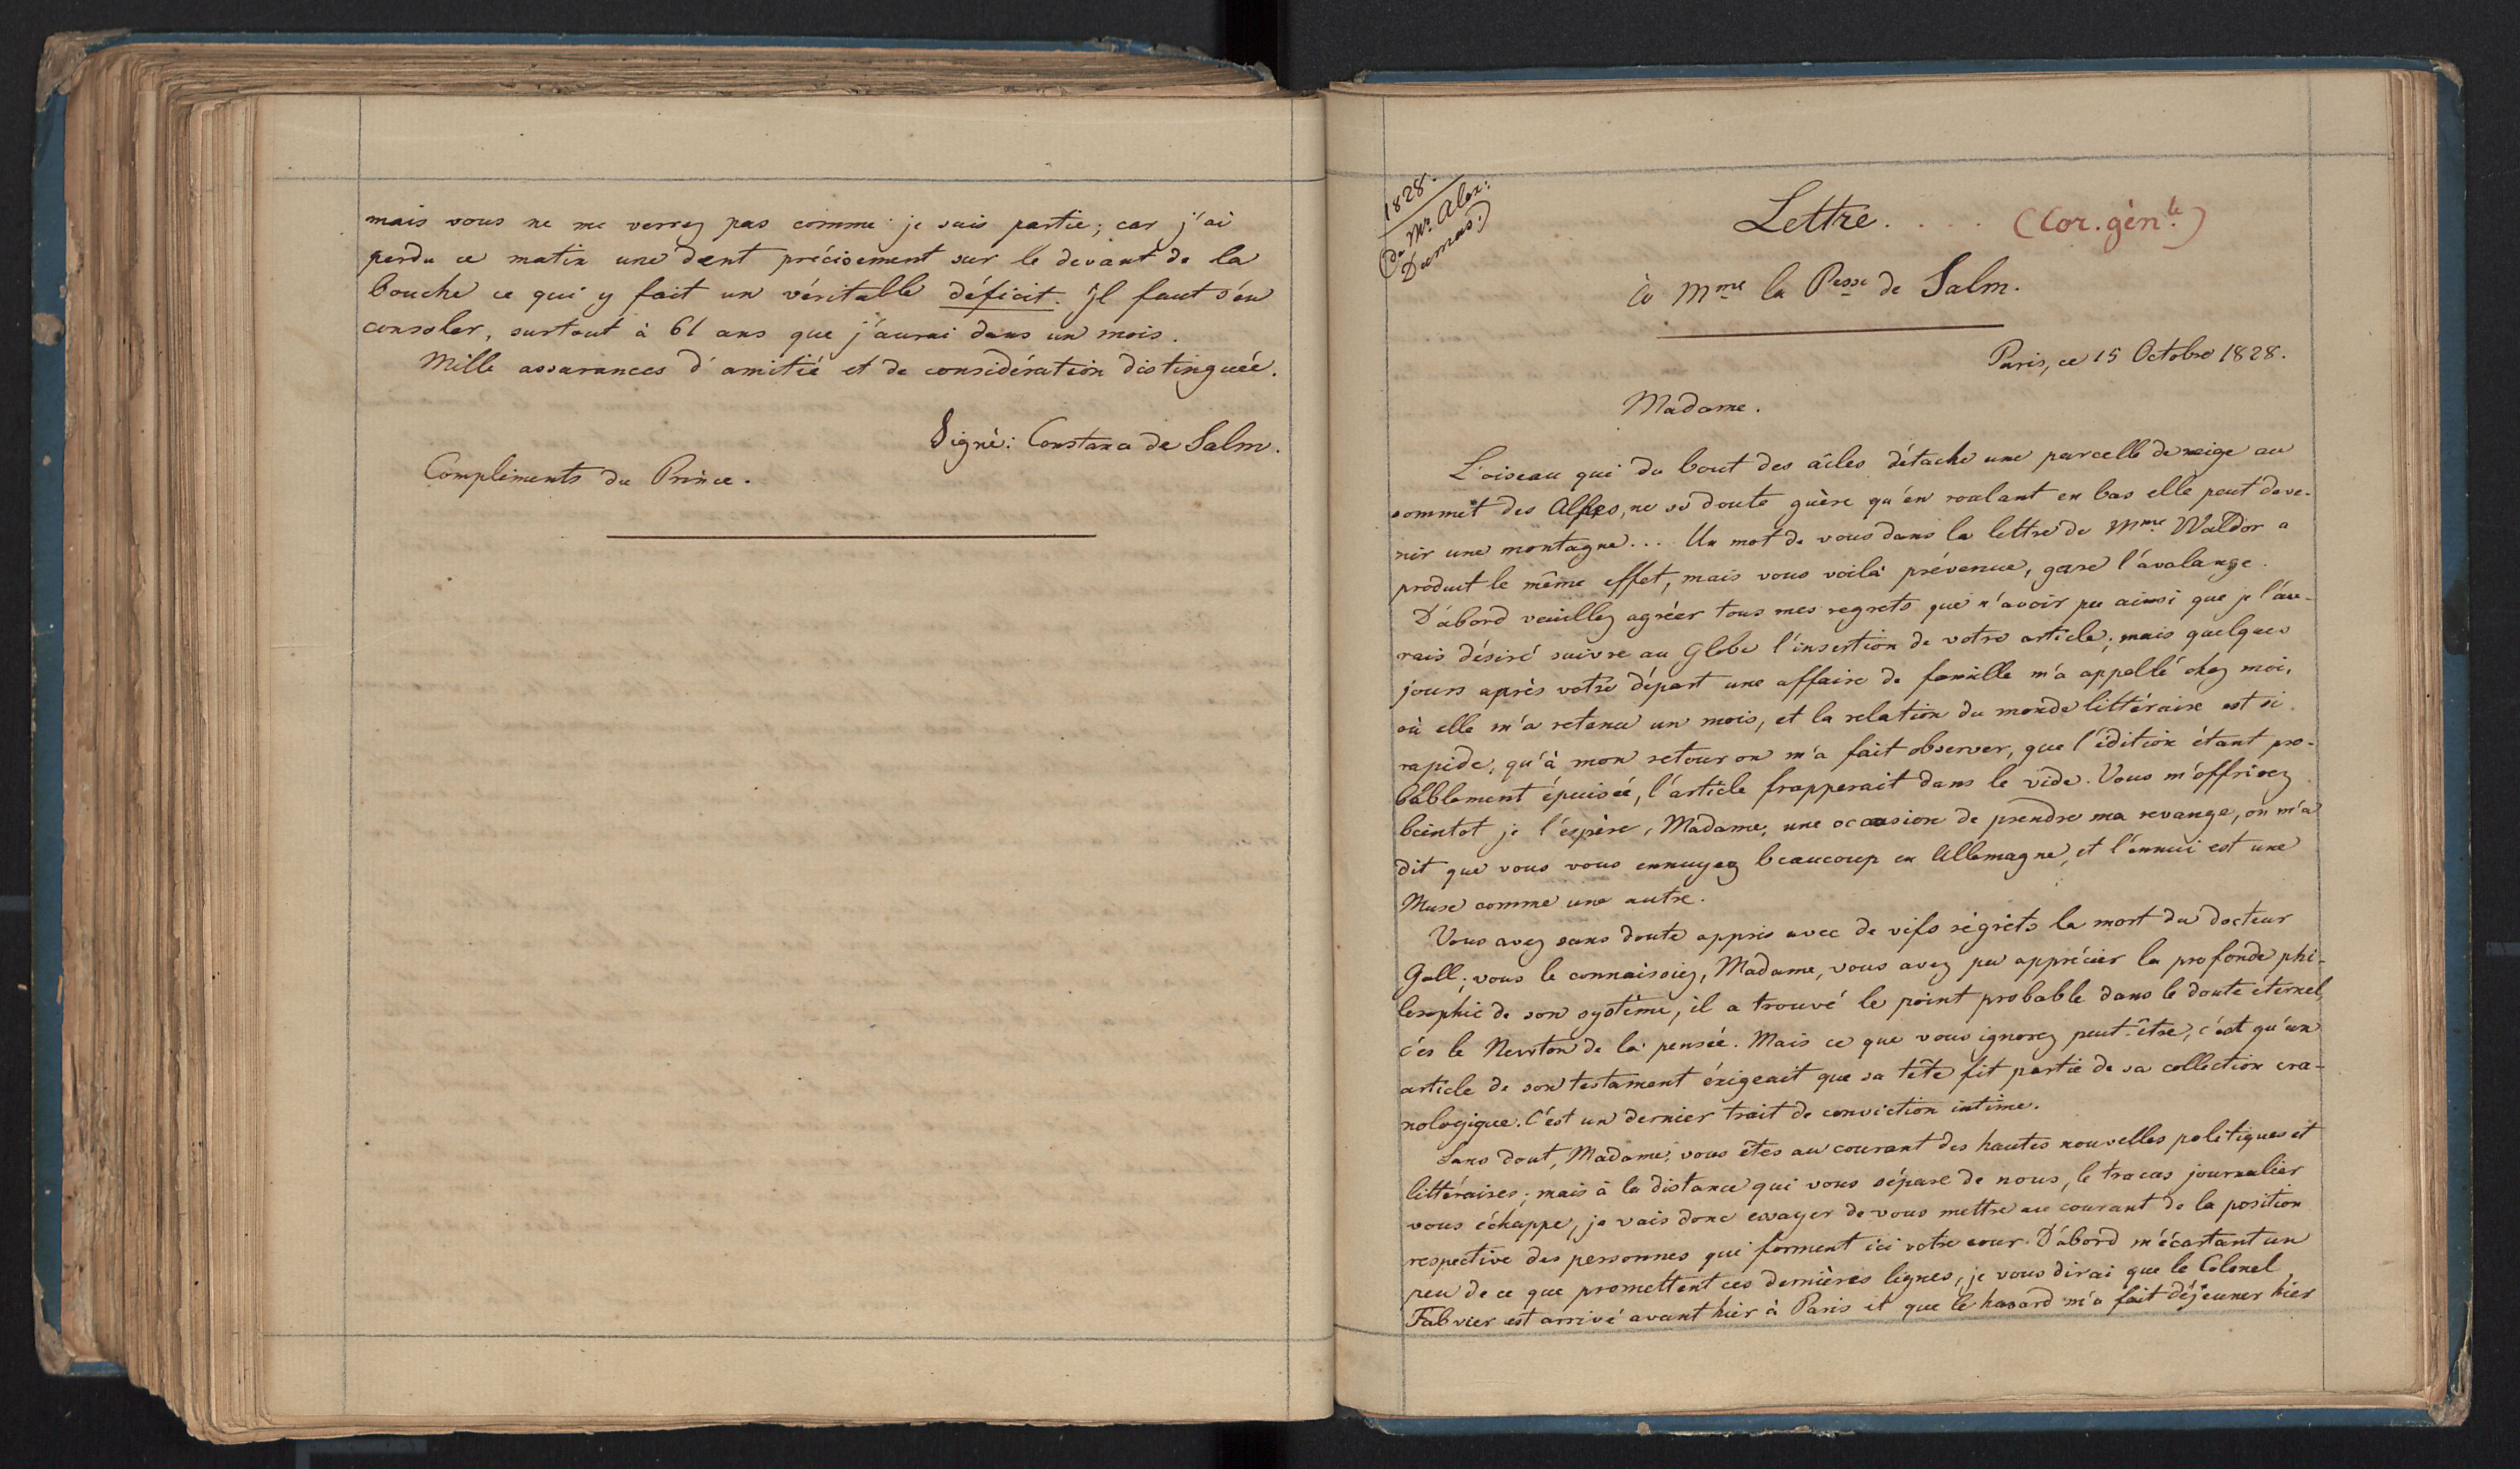 mais vous ne me verrez pas comme je suis partie; car j'ai
perdu ce matin une dent précisement sur le devant de la
bouche ce qui y fait un véritable déficit. Il faut s'en
consoler, surtout à 61 ans que j'aurai dans un mois.
Mille assurances d'amitié et de considération distinguée.
Signé: Constance de Salm.
Compliments du Prince.
1828.
(de Mr. Alex:
Dumas.)
Lettre. . . . (Cor. gèn.le)
à Mme la Pesse de Salm.
Paris, ce 15 Octobre 1828.
Madame.
L'oiseau qui du bout des aîles détache une parcelle de neige au
sommet des Alpes, ne se doute guère qu'en roulant en bas elle peut deve-
nir une montagne... Un mot de vous dans la lettre de Mme Waldor a
produit le même effet, mais vous voilà prévenue, gare l'avalange.
D'abord veuillez agréer tous mes regrets que n'avoir pu ainsi que je l'au-
rais désiré suivre au Globe l'insertion de votre article; mais quelques
jours après votre départ une affaire de famille m'a appellé chez moi,
où elle m'a retenu un mois, et la relation du monde littéraire est si
rapide, qu'à mon retour on m'a fait observer, que l'édition étant pro-
bablement épuisée, l'article frapperait dans le vide. Vous m'offrirez
beintot je l'espère, Madame, une occasion de prendre ma revange, on m'a
dit que vous vous ennuyez beaucoup en Allemagne, et l'ennui est une
Muse comme une autre.
Vous avez sans doute appris avec de vifs régrèts la mort du docteur
Gall; vous le connaissiez, Madame, vous avez pu apprécier la profonde phi-
losophie de son système, il a trouvé le point probable dans le doute éternel,
c'es le Newton de la pensée. Mais ce que vous ignorez peut-être, c'est qu'un
article de son testament éxigeait que sa tête fit partie de sa collection cra-
nologique. C'est un dernier trait de conviction intime.
Sans dout, Madame, vous êtes au courant des hautes nouvelles politiques et
littéraires; mais à la distance qui vous sépare de nous, le tracas journalier
vous échappe, je vais donc essayer de vous mettre au courant de la position
respective des personnes qui forment ici votre cour. D'abord m'écartant un
peu de ce que promettent ces dernières lignes, je vous dirai que le Colonel
Fabvier est arrivé avant hier à Paris et que le hasard m'a fait déjeuner hier